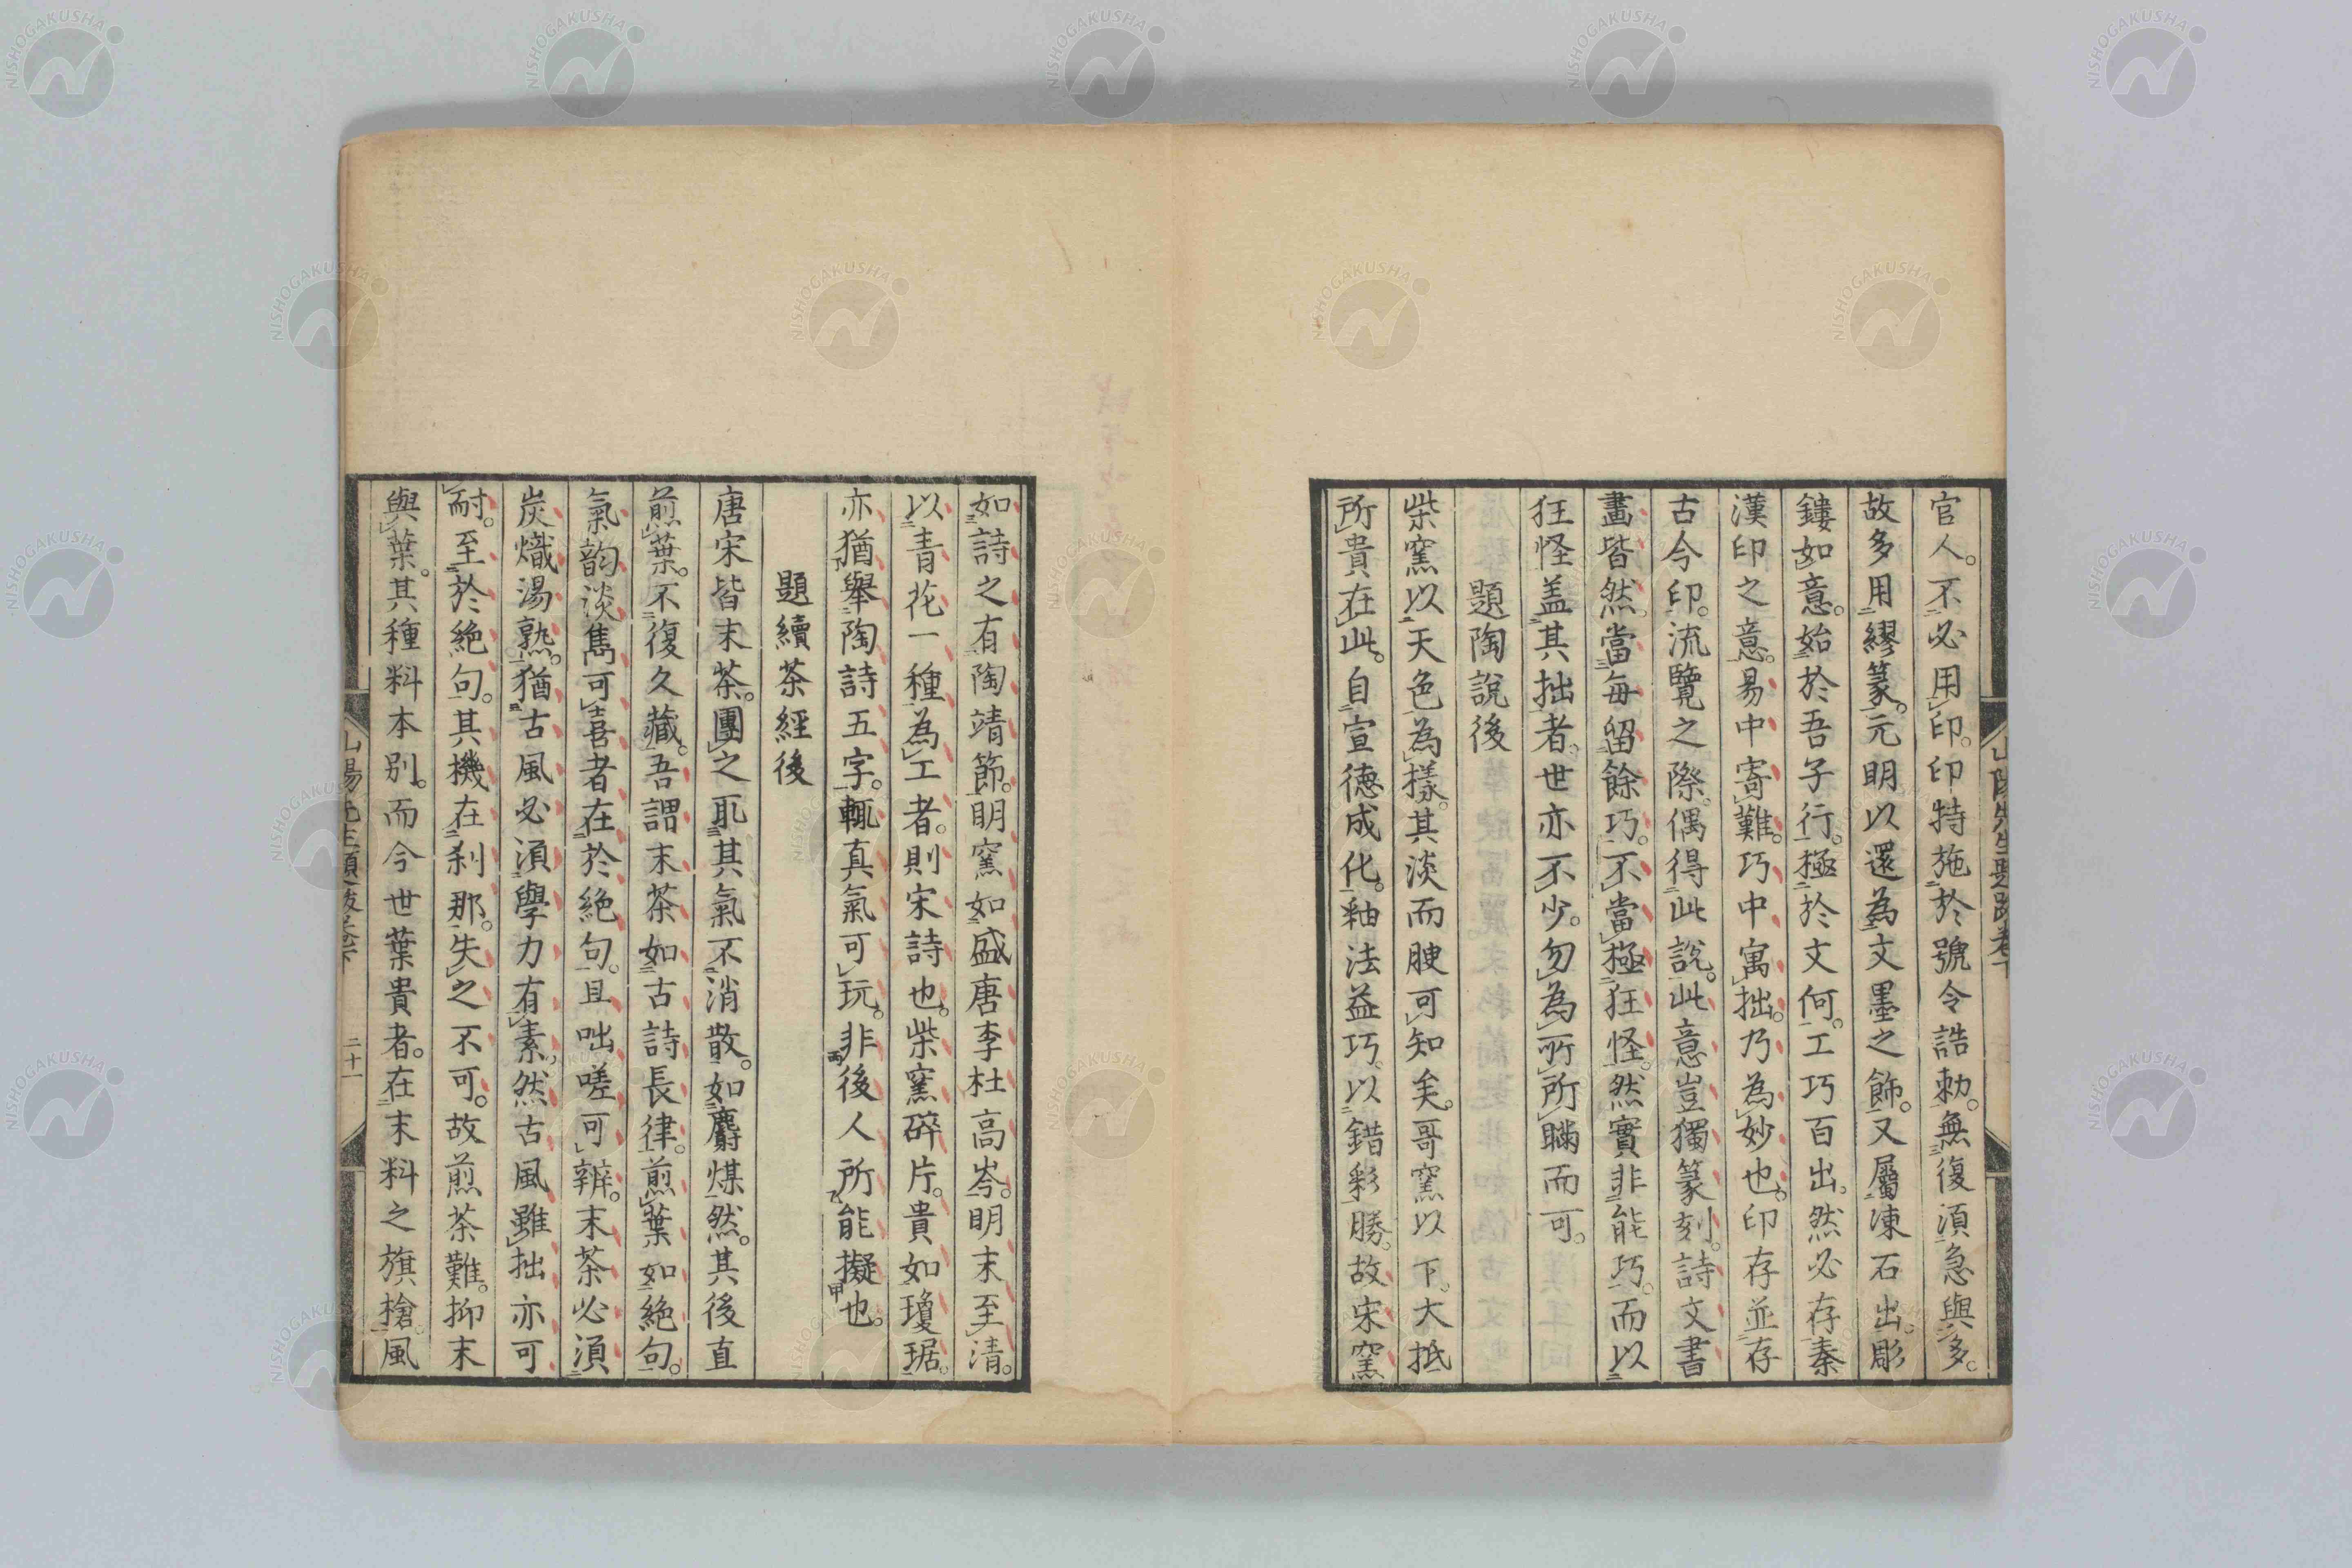 官人。不必用印。印特施於號令誥勅。無復須急與多。
故多用繆篆。元明以還為文墨之飾。又屬凍石出。彫
鏤如意。始於吾子行。極於文何。工巧百出。然必存秦
漢印之意。易中寄難。巧中寓拙。乃為妙也。印存並存
古今印。流覽之際。偶得此說。此意豈獨篆刻。詩文書
畫皆然。當每留餘巧。不當極狂怪。然實非能巧。而以
狂怪盖其拙者。世亦不少。勿為所瞞而可。
題陶說後
柴窯以天色為樣。其淡而腴可知矣。哥窯以下。大抵
所貴在此。自宣德成化。釉法益巧。以錯彩勝。故宋窯
如詩之有陶靖節。明窯如盛唐李杜高岑。明末至清。
以青花一種為工者。則宋詩也。柴窯碎片。貴如瓊琚。
亦猶舉陶詩五字。輒真氣可玩。非後人所能擬也。
題續茶經後
唐宋皆末茶。團之耴其氣不消散。如麝煤然。其後直
煎葉。不復久藏。吾謂末茶如古詩長律。煎葉如絕句。
氣韵淡雋可喜者在於絕句。且咄嗟可辨。末茶必湏
炭熾湯熟。猶古風必湏學力有素。然古風雖拙亦可
耐。至於絕句。其機在刹那。失之不可。故煎茶難。抑末
與葉。其種料本別。而今世葉貴者。在末料之旗槍。風
山陽先生題跋卷下
二十一
NISHOGAKUSHA